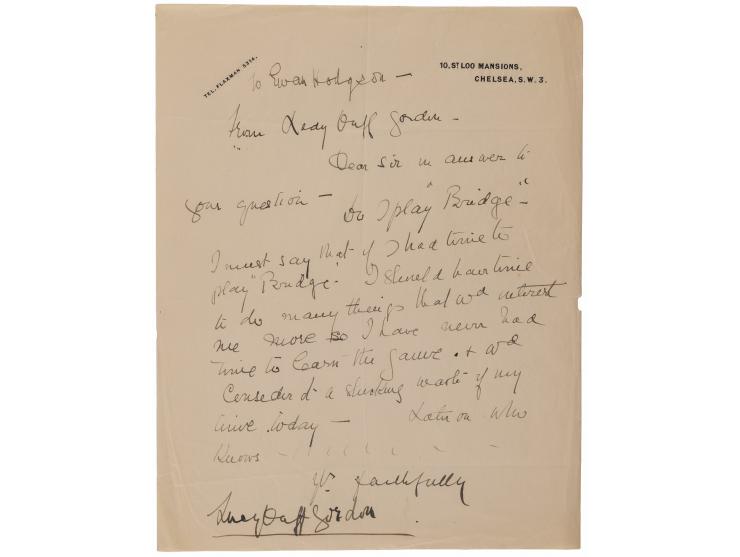 TEL. FLAXMAN 5314.
10, ST LOO MANSIONS,
CHELSEA, S.W. 3.
To Ewan Hodgson —
"From Lady Duff Gordon —
Dear Sir in answer to
your question — Do I play "Bridge" —
I must say that if I had time to
play "Bridge" I should have time
to do many things that wd interest
me more so I have never had
time to learn the game . + wd
Consider it a shocking waste of my
time today — Later on who
knows —
Yrs faithfully
Lucy Duff Gordon